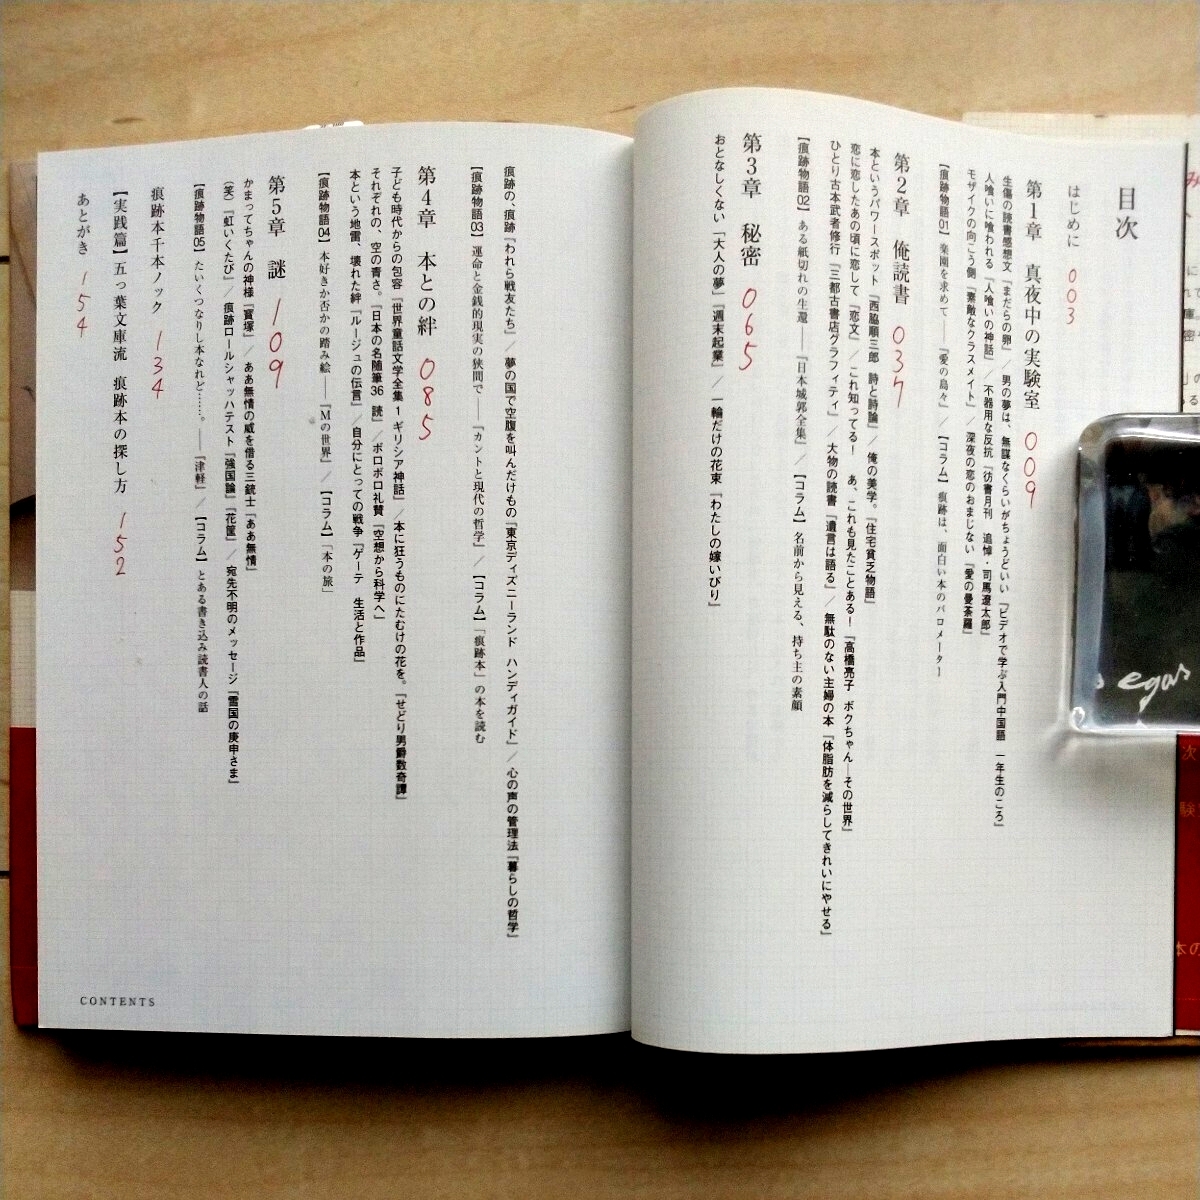 目次
はじめに 003
第1章 真夜中の実験室 009
生傷の読書感想文『まだらの卵』／男の夢は、無謀なくらいがちょうどいい『ビデオで学ぶ入門中国語 一年生のころ』
人喰いに喰われる『人喰いの神話』／不器用な反抗『彷書月刊 追悼・司馬遼太郎』
モザイクの向こう側『素敵なクラスメイト』／深夜の恋のおまじない『愛の曼荼羅』
【痕跡物語01】楽園を求めて――『愛の島々』／【コラム】痕跡は、面白い本のバロメーター
第2章 俺読書 037
本というパワースポット『西脇順三郎 詩と詩論』／俺の美学。『住宅貧乏物語』
恋に恋したあの頃に恋して『恋文』／これ知ってる！ あ、これも見たことある！『高橋亮子 ボクちゃん―その世界』
ひとり古本武者修行『三都古書店グラフィティ』／大物の読書『遺言は語る』／無駄のない主婦の本『体脂肪を減らしてきれいにやせる』
【痕跡物語02】ある紙切れの生還――『日本城郭全集』／【コラム】名前から見える、持ち主の素顔
第3章 秘密 065
おとなしくない「大人の夢」『週末起業』／一輪だけの花束『わたしの嫁いびり』
痕跡の、痕跡『われら戦友たち』／夢の国で空腹を叫んだけもの『東京ディズニーランド ハンディガイド』／心の声の管理法『暮らしの哲学』
【痕跡物語03】運命と金銭的現実の狭間で――『カントと現代の哲学』／【コラム】「痕跡本」の本を読む
第4章 本との絆 085
子ども時代からの包容『世界童話文学全集 1 ギリシア神話』／本に狂うものにたむけの花を。『せどり男爵数奇譚』
それぞれの、空の青さ。『日本の名随筆36 読』／ボロボロ礼賛『空想から科学へ』
本という地雷、壊れた絆『ルージュの伝言』／自分にとっての戦争『ゲーテ 生活と作品』
【痕跡物語04】本好きか否かの踏み絵――『Mの世界』／【コラム】「本の旅」
第5章 謎 109
かまってちゃんの神様『寶塚』／ああ無情の威を借る三銃士『ああ無情』
（笑）『虹いくたび』／痕跡ロールシャッハテスト『強国論』『花筐』／宛先不明のメッセージ『雪国の庚申さま』
【痕跡物語05】たいくつなりし本なれど……。――『津軽』／【コラム】とある書き込み読書人の話
痕跡本千本ノック 134
【実践篇】五っ葉文庫流 痕跡本の探し方 152
あとがき 154
CONTENTS
egas